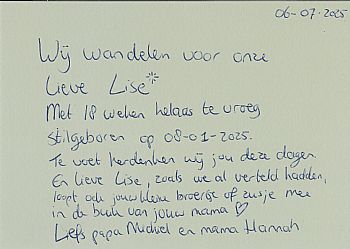 06-07-2025
Wij wandelen voor onze
lieve Lise*
Met 18 weken helaas te vroeg
stilgeboren op 08-01-2025.
Te voet herdenken wij jou deze dagen.
En lieve Lise, zoals we al verteld hadden,
loopt ook jouw kleine broertje of zusje mee
in de buik van jouw mama ♡
Liefs papa Michiel en mama Hannah